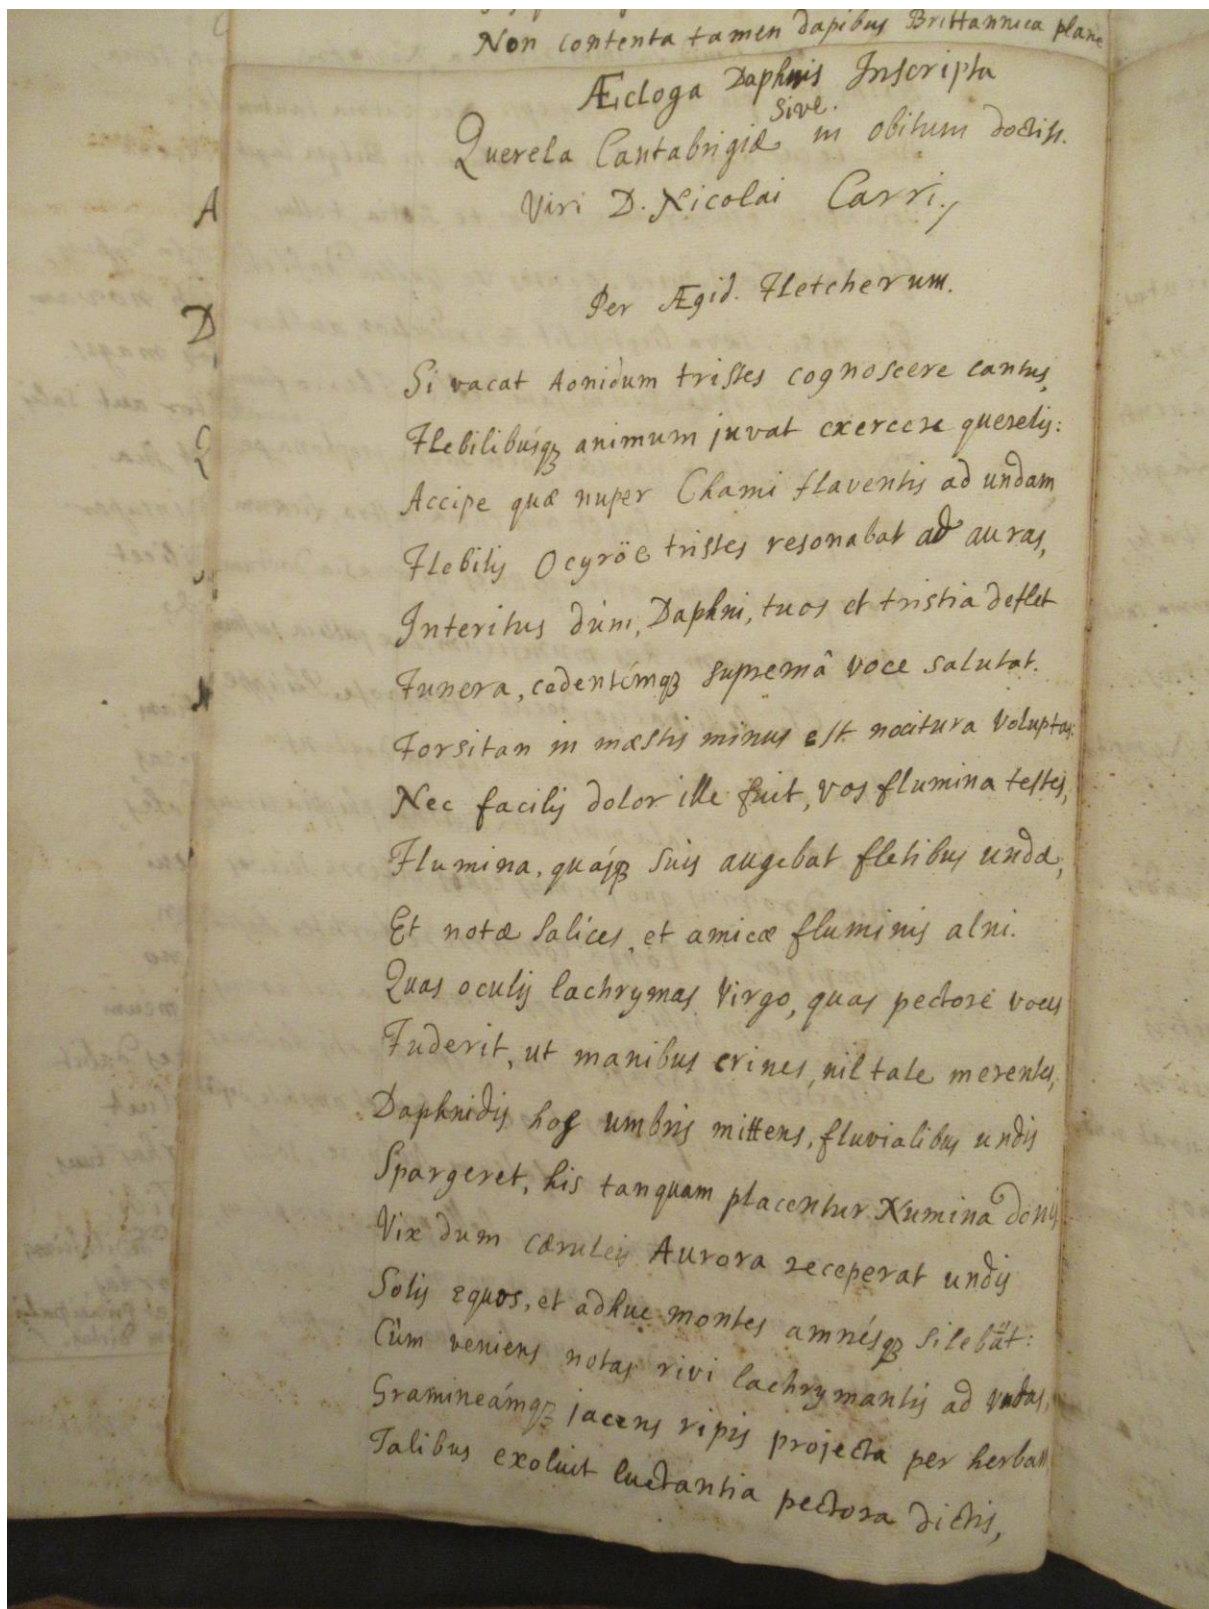 Non contenta tamen dapibus Brittannica plane
Æcloga Daphnis Inscripta
Sive.
Querela Cantabrigiæ in obitum doctiss.
Viri D. Nicolai Carri.
Per Ægid. Fletcherum.
Si vacat Aonidum tristes cognoscere cantus,
Flebilibúsq; animum juvat exercere querelis:
Accipe quæ nuper Chami flaventis ad undam
Flebilis Ocyröe tristes resonabat ad auras,
Interitus dum, Daphni, tuos et tristia deflet
Funera, cedentémq; supremâ voce salutat.
Forsitan in mæstis minus est nocitura voluptas:
Nec facilis dolor ille fuit, vos flumina testes,
Flumina, quásq; suis augebat fletibus undæ,
Et notæ salices, et amicæ fluminis alni.
Quas oculis lachrymas Virgo, quas pectore voces
Fuderit, ut manibus crines, nil tale merentes,
Daphnidis hos umbris mittens, fluvialibus undis
Spargeret, his tanquam placentur Numina donis
Vix dum cæruleis Aurora receperat undis
Solis equos, et adhuc montes amnésq; silebāt:
Cùm veniens notas rivi lachrymantis ad undas,
Gramineámq; jacens ripis projecta per herbam
Talibus exoluit luctantia pectora dictis,
A
D
Q